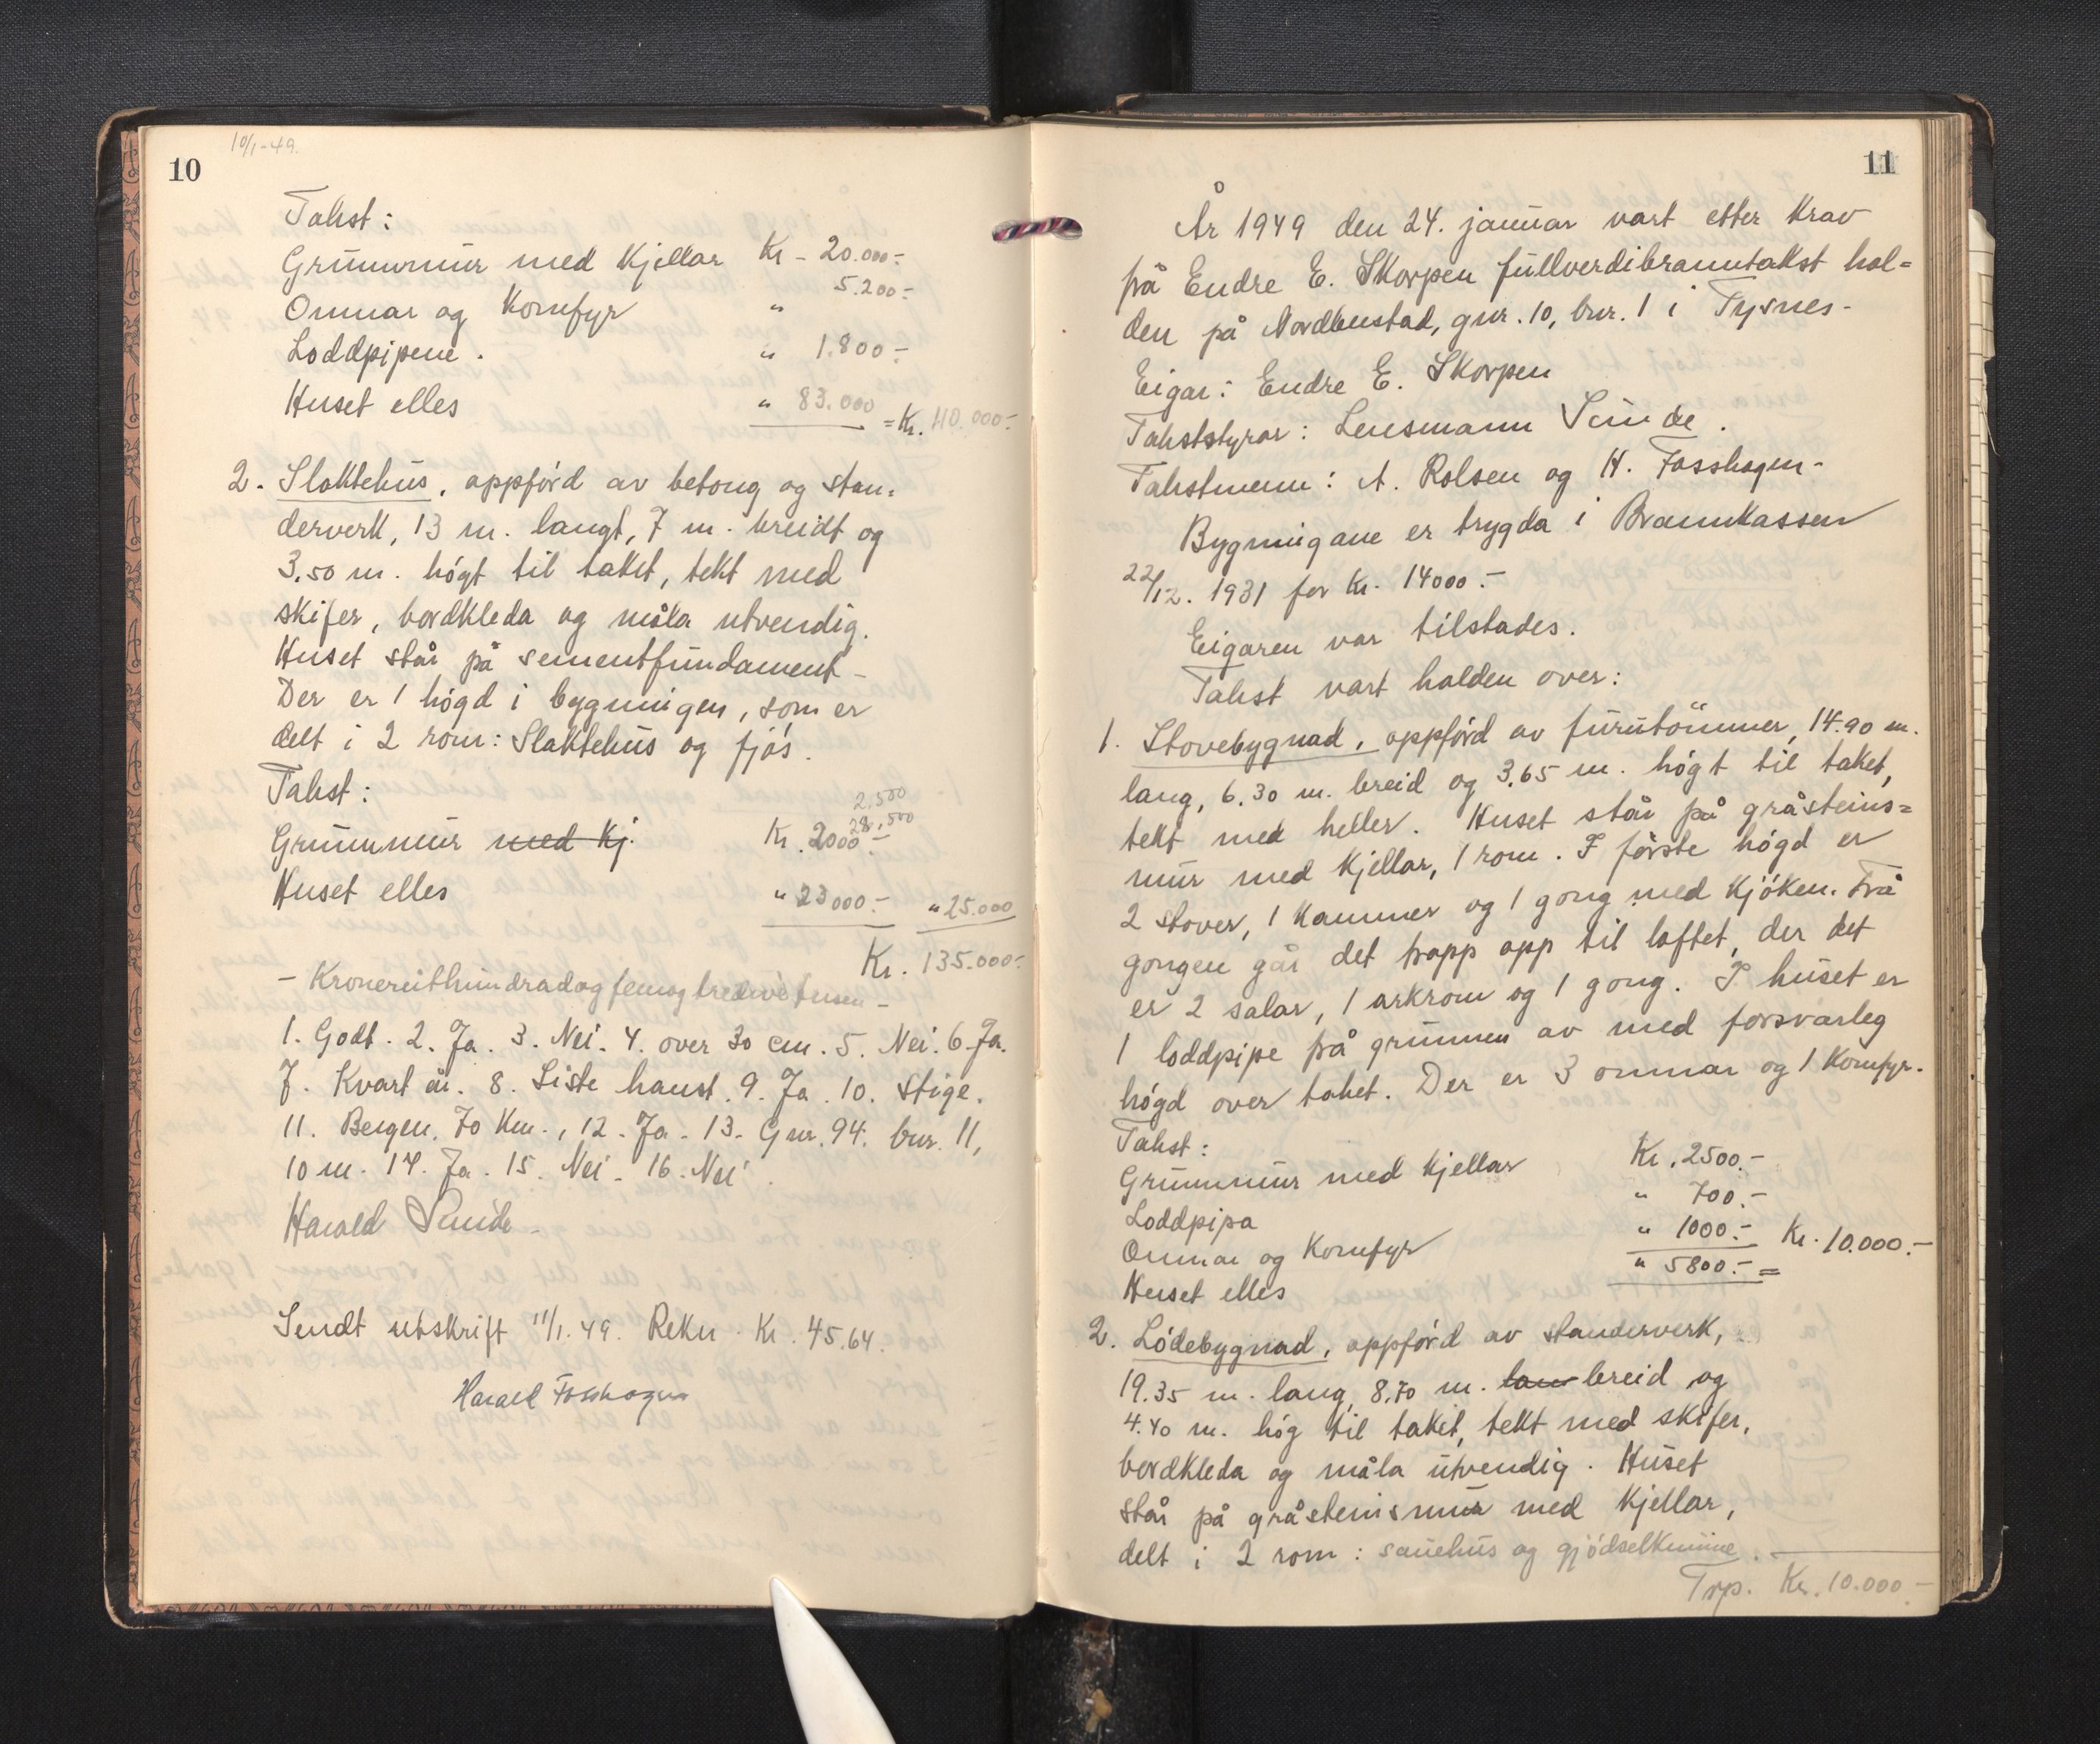 10/1-49.
10
Takst:
Grunnmur med kjellar Kr - 20.000:-
Omnar og Komfyr " 5.200:-
Loddpipene. " 1.800:-
Huset elles " 83.000 = Kr. 110.000:-
2. Slaktehus, oppførd av betong og sten-
derverk, 13 m. langt, 7 m. breidt og
3.50 m. høgt til taket, tekt med
skifer, bordkleda og måla utvendig.
Huset står på sementfundament-
Der er 1 høgd i bygningen, som er
delt i 2 rom: Slaktehus og fjøs.
Takst:
2.500
Grunnmur med kj. Kr. 2000:-
28.500
Huset elles " 23000:- " 25.000
Kr. 135.000:-
- Kronereitthundradogfemogtredivetusen -
1. Godt. 2. Ja. 3. Nei. 4. over 30 cm. 5. Nei. 6. Ja.
7. Kvart år. 8. Siste haust. 9. Ja. 10. Stige.
11. Bergen. 70 km., 12. Ja. 13. Gnr. 94. bnr. 11,
10 m. 14. Ja. 15. Nei. 16. Nei.
Harald Sunde
Sendt utskrift 11/1. 49. Rekn. Kr. 45.64.
Harald Fosshagen
11
År 1949 den 24. januar vart etter krav
frå Endre E. Skorpen fullverdibranntakst hal=
den på Nordbustad, gnr. 10, bnr. 1 i Tysnes-
Eigar: Endre E. Skorpen
Takststyrar: Lensmann Sunde.
Takstmenn: A. Rolsen og H. Fosshagen-
Bygningane er trygda i Brannkassen
22/12. 1931 for Kr. 14000.-
Eigaren var tilstades.
Takst vart halden over:
1. Stovebygnad, oppførd av furutömmer, 14.90 m.
lang, 6.30 m. breid og 3.65 m. høgt til taket,
tekt med heller. Huset står på gråsteins=
mur med kjellar, 1 rom. I første høgd er
2 stover, 1 kammer og 1 gong med kjøken. Frå
gongen går det trapp opp til loftet, der det
er 2 salar, 1 arkrom og 1 gong. I huset er
1 loddpipe frå grunnen av med forsvarleg
høgd over taket. Der er 3 omnar og 1 Komfyr.
Takst:
Grunnmur med kjellar Kr. 2500.-
Loddpipa " 700.-
Omnar og Komfyr " 1000.- Kr. 10.000.-
Huset elles " 5800.- =
2. Lødebygnad, oppførd av standerverk,
19.35 m. lang, 8.70 m. lan breid og
4.40 m. høg til taket, tekt med skifer,
bordkleda og måla utvendig. Huset
står på gråsteinsmur med kjellar,
delt i 2 rom: sauehus og gjødselkumme.
Trp. Kr. 10.000-